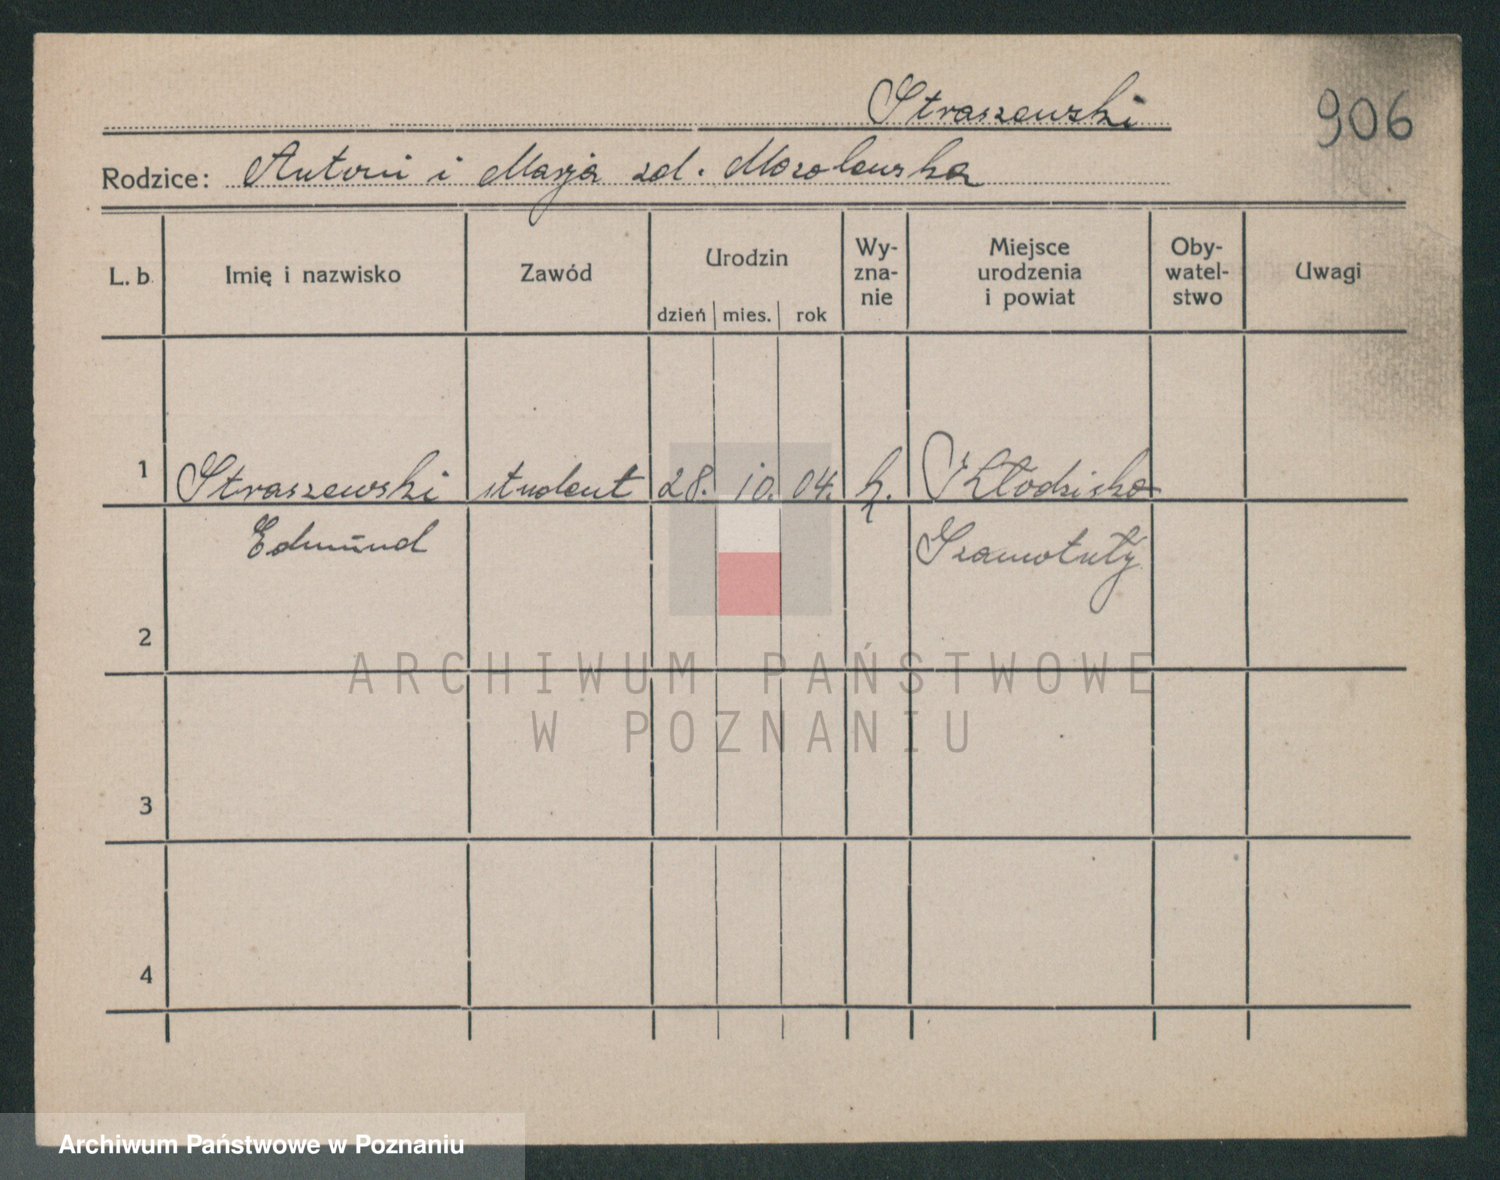 Straszewski
906
Rodzice: Antoni i Marja zd. Mozolewska
L. b. Imię i nazwisko Zawód Urodzin dzień mies. rok Wy-zna-nie Miejsce urodzenia i powiat Oby-watel-stwo Uwagi
1 Straszewski student 28. 10. 04. k. Kłodzisko
Edmund Szamotuły
2
ARCHIWUM PAŃSTWOWE
W POZNANIU
3
4
Archiwum Państwowe w Poznaniu